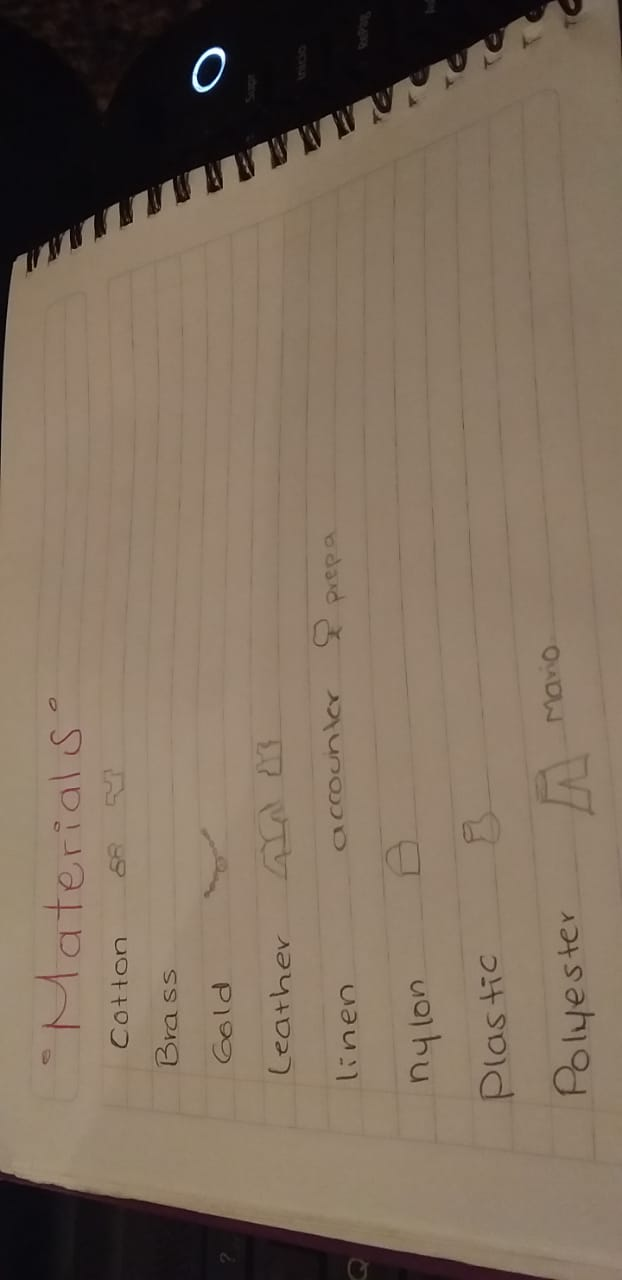 "Materials"
Cotton
Brass
Gold
Leather
linen accounter prepa
nylon
Plastic
Polyester Mario
Supr
Inicio
RePág
?
Q